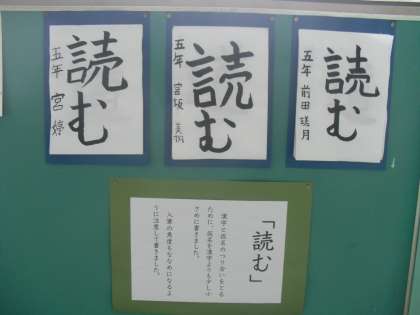 読む
五年 前田
読む
五年 宮坂
読む
五年 宮 婷
「読む」
漢字と仮名のつり合いをとる
ために、仮名を漢字よりも少し小
さめに書きました。
入筆の角度もななめになるよ
うに注意して書きました。